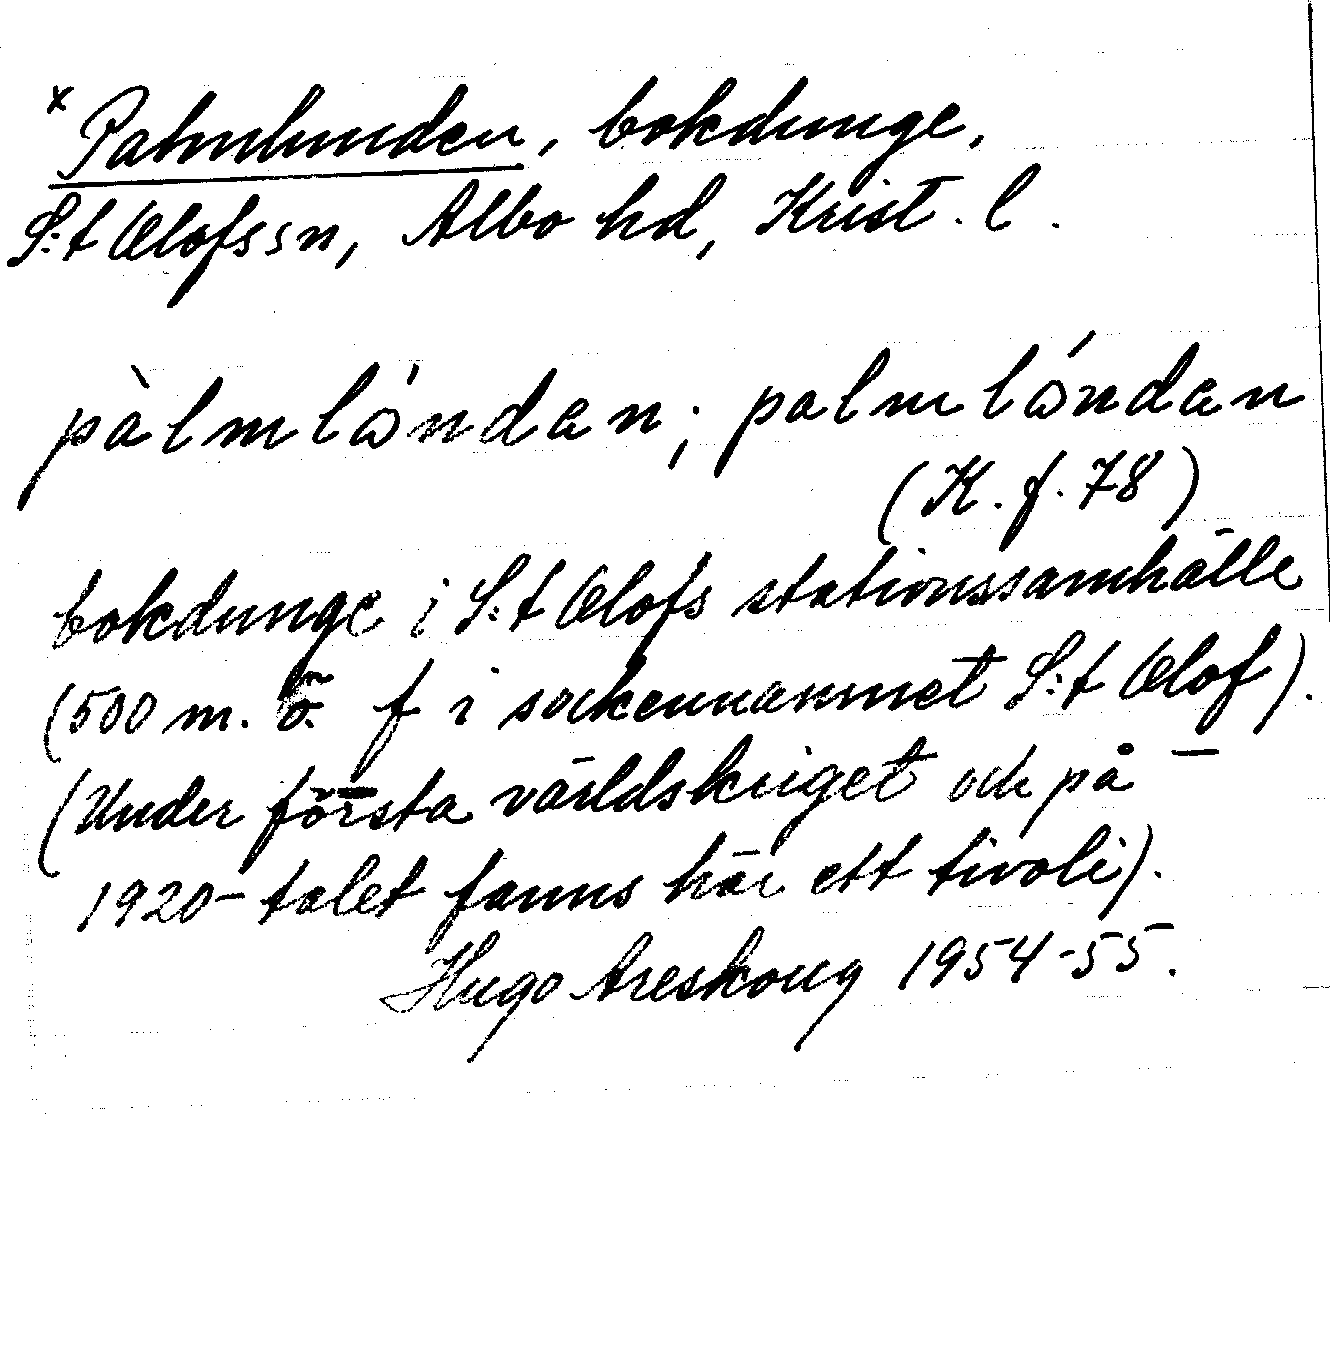 x Palmlunden, bokdunge,
S:t Olofs sn, Albo hd, Krist. l.
pàlmlón̍dan; palmlóndan
(K. f. 78)
bokdunge i S:t Olofs stationssamhälle
(500 m. ö. f i sockennamnet S:t Olof).
(Under första världskriget och på –
1920-talet fanns här ett tivoli).
Hugo Areskoug 1954-55.